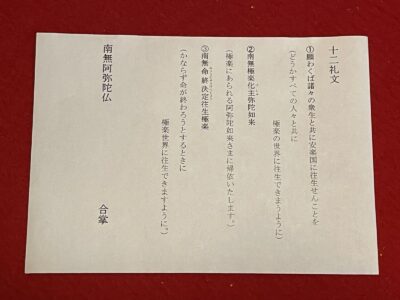 十二礼文
①願わくば諸々の衆生と共に安楽国に往生せんことを
(どうかすべての人々と共に
極楽の世界に往生できまうように)
②南無極楽化主弥陀如来
(極楽にあられる阿弥陀如来さまに帰依いたします。)
③南無命終決定往生極楽
(かならず命が終わろうとするときに
極楽世界に往生できますように。)
南無阿弥陀仏
合掌